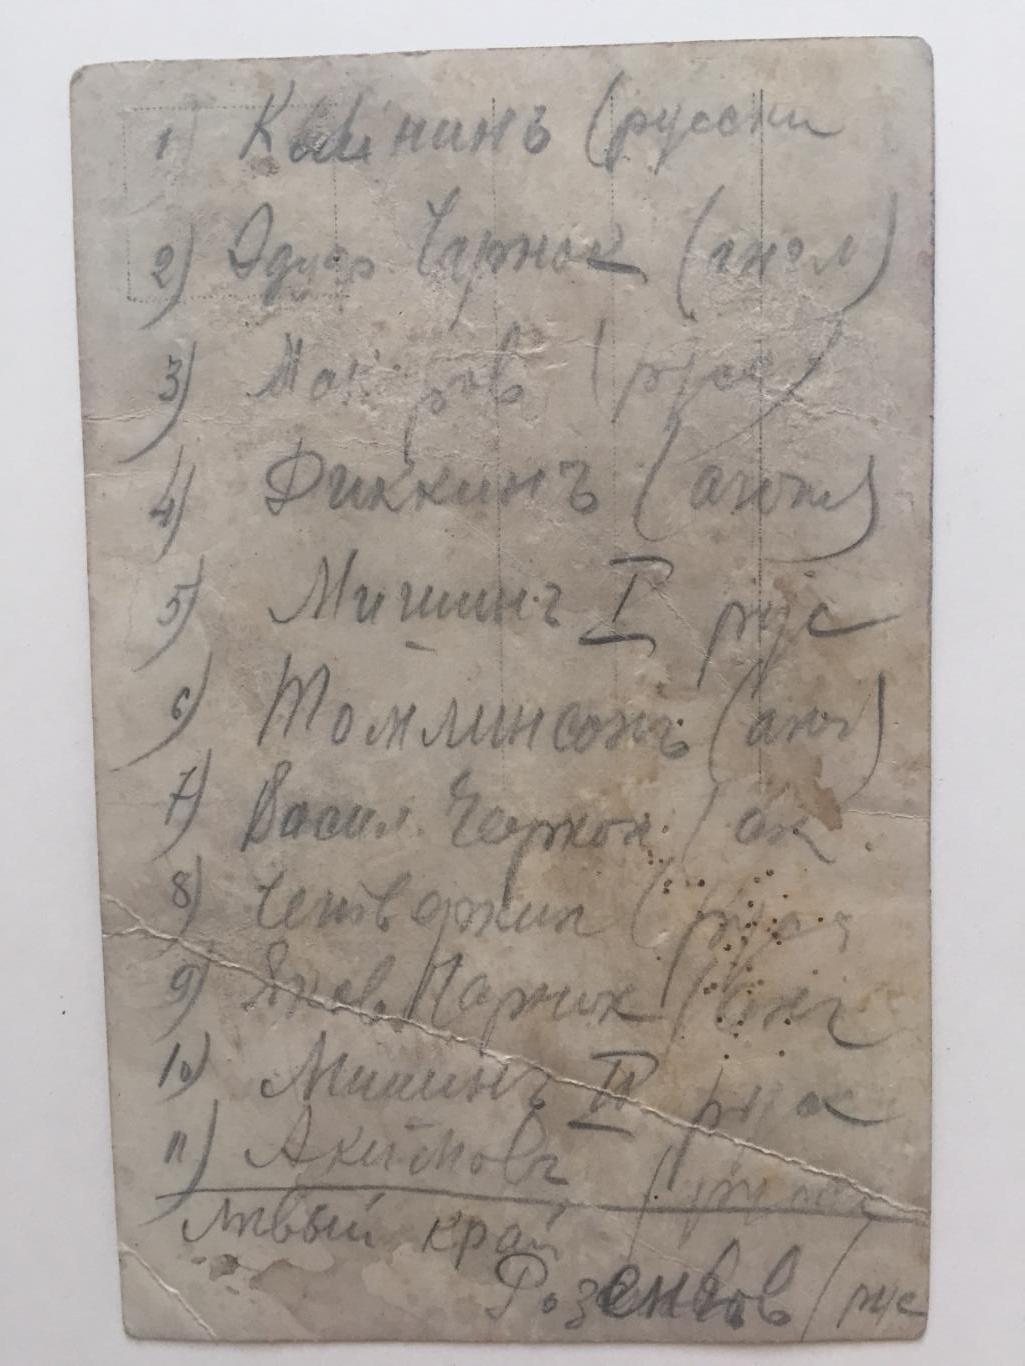 1) Калининъ (русски
2) Эдуар. Чарнок (англ)
3) Макаров (русс)
4) Диккинъ (англ)
5) Мишинъ I рус
6) Томлинсонъ (анг)
7) Васил. Чарнок (ан
8) Четверкин (русс
9) Яков Чарнок (анг
10) Мишинъ II рус
11) Акимовъ (русск
Лѣвый край
Розенков (рус